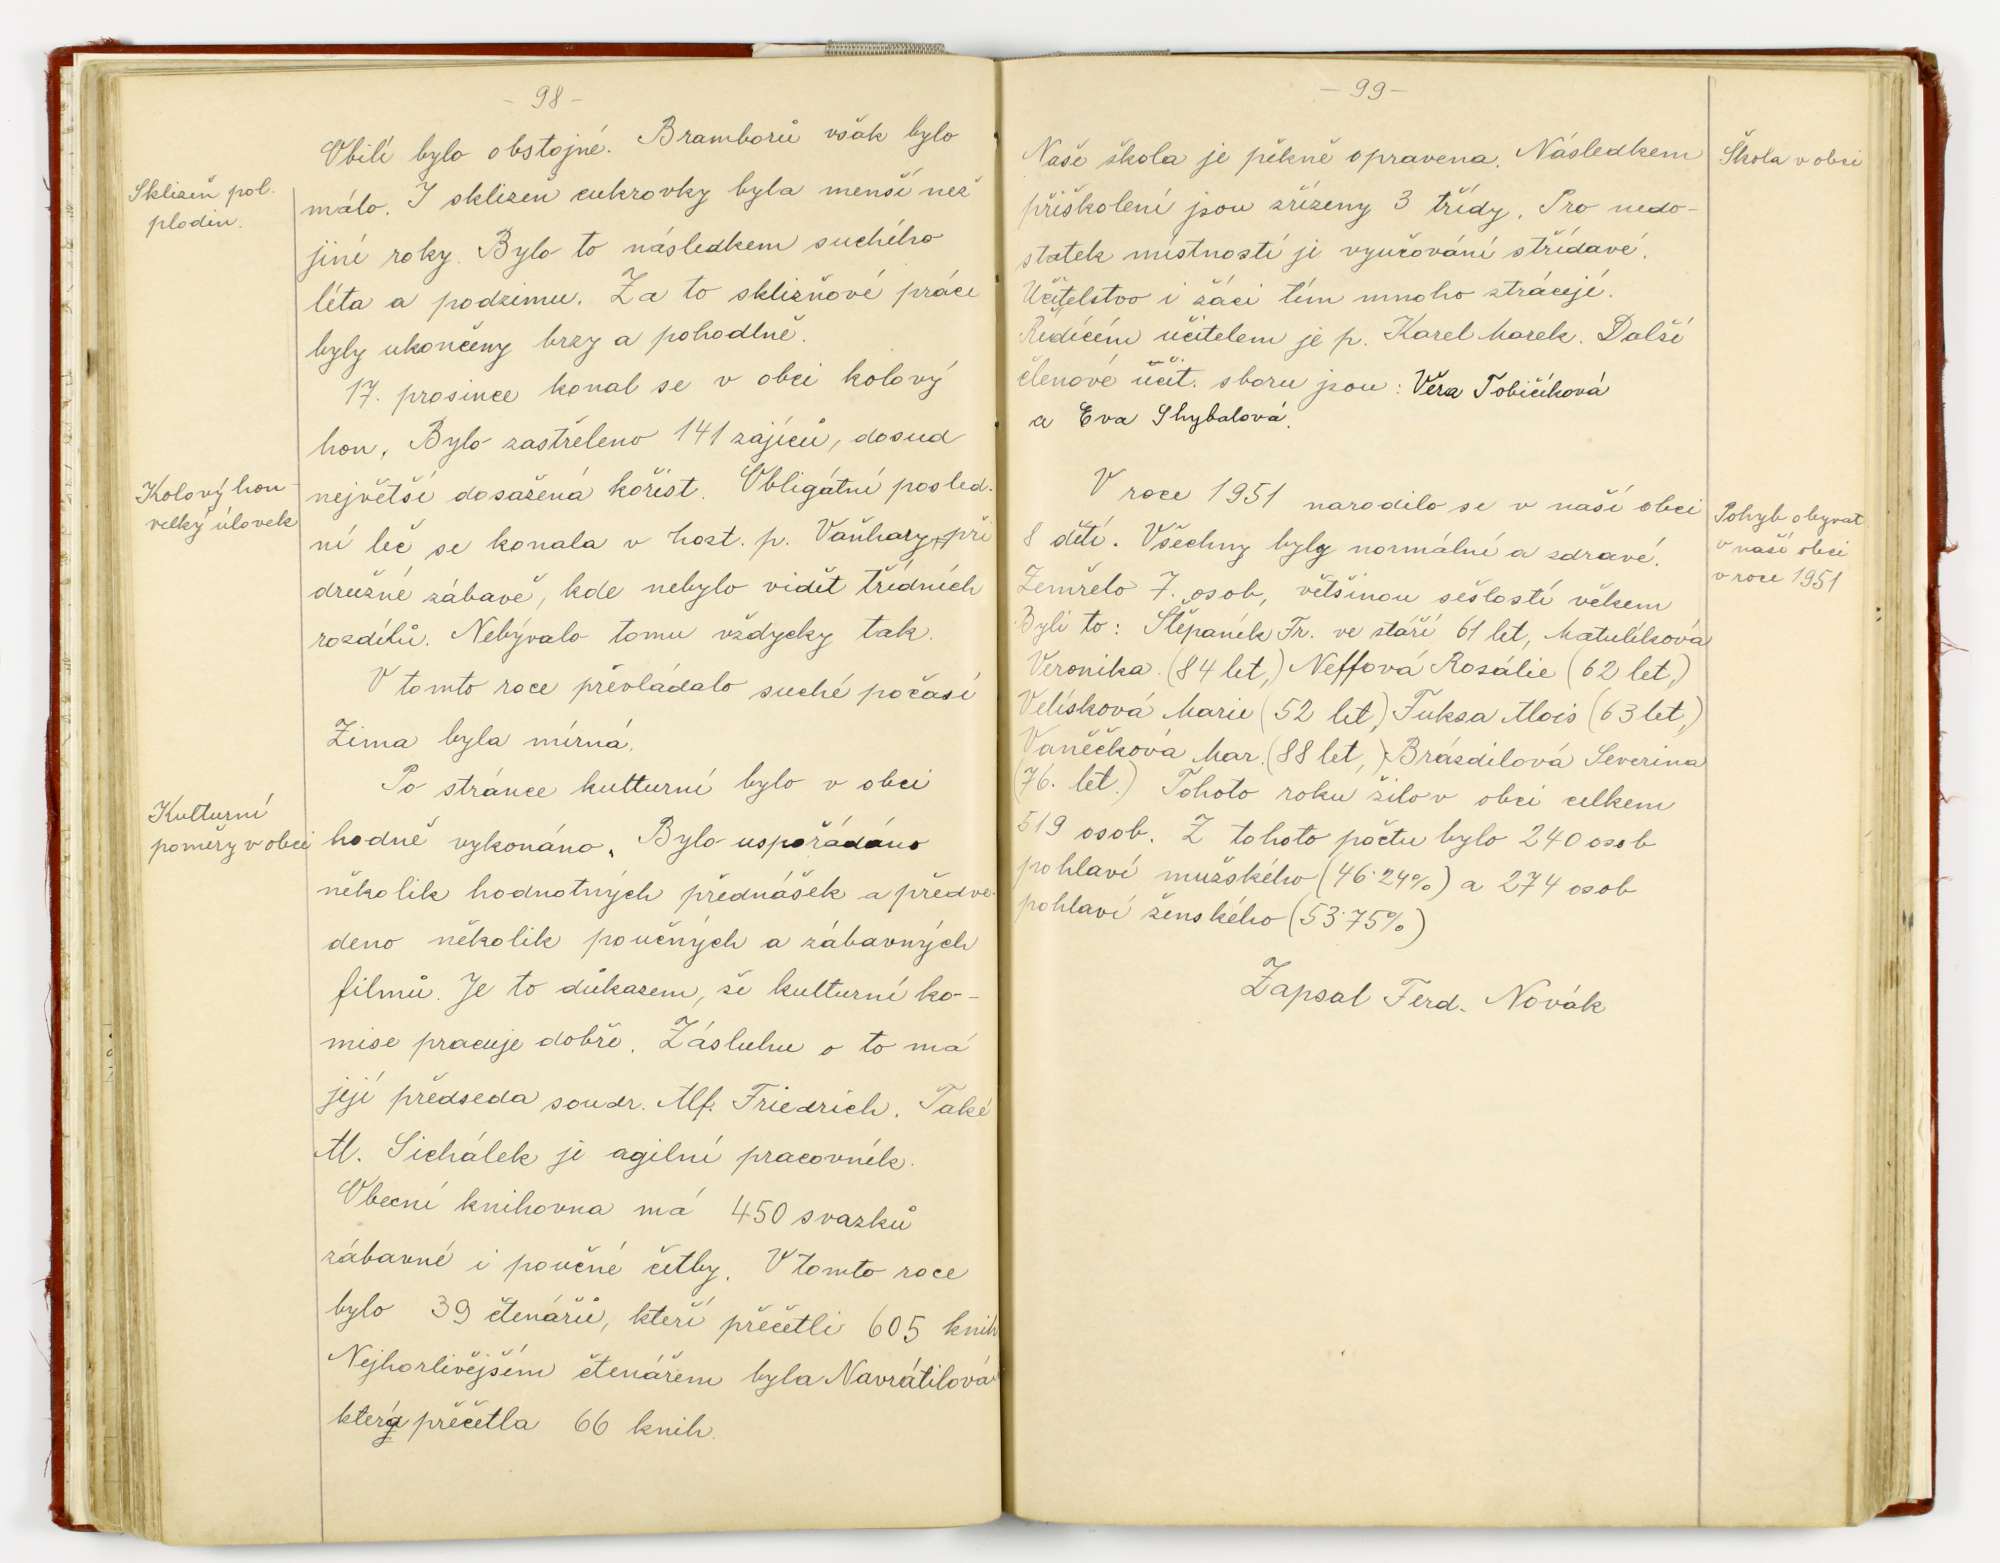 - 98 -
Obilí bylo obstojné. Bramborů však bylo
Sklizeň pol.
plodin.
málo. I sklizeň cukrovky byla menší než
jiné roky. Bylo to následkem suchého
léta a podzimu. Za to sklizňové práce
byly ukončeny brzy a pohodlně.
17. prosince konal se v obci kolový
hon. Bylo zastřeleno 141 zajíců, dosud
Kolový hon -
velký úlovek
největší dosažená kořist. Obligátní posled-
ní leč se konala v host. p. Vaňhary při
družné zábavě, kde nebylo vidět třídních
rozdílů. Nebývalo tomu vždycky tak.
V tomto roce převládalo suché počasí
Zima byla mírná.
Po stránce kulturní bylo v obci
Kulturní
poměry v obci
hodně vykonáno. Bylo uspořádáno
několik hodnotných přednášek a předve-
deno několik poučných a zábavných
filmů. Je to důkazem, že kulturní ko-
mise pracuje dobře. Zásluhu o to má
její předseda soudr. Alf. Friedrich. Také
Al. Sichálek je agilní pracovník.
Obecní knihovna má 450 svazků
zábavné i poučné četby. V tomto roce
bylo 39 čtenářů, kteří přečetli 605 knih
Nejhorlivějším čtenářem byla Navrátilová
která přečetla 66 knih.
- 99 -
Naše škola je pěkně opravena. Následkem
Škola v obci
přiškolení jsou zřízeny 3 třídy. Pro nedo-
statek místností je vyučování střídavé.
Učitelstvo i žáci tím mnoho ztrácejí.
Řídícím učitelem je p. Karel Marek. Další
členové učit. sboru jsou: Věra Tobičíková
a Eva Shybalová.
V roce 1951 narodilo se v naší obci
Pohyb obyvat.
v naší obci
v roce 1951
8 dětí. Všechny byly normální a zdravé.
Zemřelo 7. osob, většinou sešlostí věkem
Byli to: Štěpaník Fr. ve stáří 61 let, Matulíková
Veronika (84 let,) Neffová Rosálie (62 let,)
Velísková Marie (52 let,) Fuksa Alois (63 let,)
Vaněčková Mar. (88 let,) Brázdilová Severina
(76. let.) Tohoto roku žilo v obci celkem
519 osob. Z tohoto počtu bylo 240 osob
pohlaví mužského (46·24%) a 274 osob
pohlaví ženského (53·75%)
Zapsal Ferd. Novák